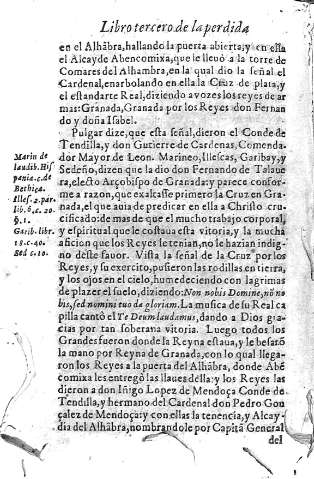 Libro tercero de la perdida
en el Alhãbra, hallando la puerta abierta, y en ella
el Alcayde Abencomixa, que le lleuò a la torre de
Comares del Alhambra, en la qual dio la señal el
Cardenal, enarbolando en ella la Cruz de plata, y
el estandarte Real, diziendo a vozes los reyes de ar
mas: Granada, Granada por los Reyes don Fernan
do y doña Isabel.
Pulgar dize, que esta señal, dieron el Conde de
Tendilla, y don Gutierre de Cardenas, Comenda
dor Mayor de Leon. Marineo, Illescas, Garibay, y
Sedeño, dizen que la dio don Fernando de Talaue
ra, electo Arçobispo de Granada: y parece confor-
me a razon, que exaltasse primero la Cruz en Gra
nada, el que auia de predicar en ella a Christo cru-
cificado: de mas de que el mucho trabajo corporal,
y espiritual que le costaua esta vitoria, y la mucha
aficion que los Reyes le tenian, no le hazian indig-
no deste fauor. Vista la señal de la Cruz por los
Reyes, y su exercito, pusieron las rodillas en tierra,
y los ojos en el cielo, humedeciendo con lagrimas
de plazer el suelo, diziendo: Non nobis Domine, nõ no
bis, sed nomini tuo da gloriam. La musica de su Real ca
pilla cantò el Te Deum laudamus, dando a Dios gra
cias por tan soberana vitoria. Luego todos los
Grandes fueron donde la Reyna estaua, y le besarõ
la mano por Reyna de Granada, con lo qual llega-
ron los Reyes a la puerta del Alhãbra, donde Abẽ
comixa les entregò las llaues della: y los Reyes las
dieron a don Iñigo Lopez de Mendoça Conde de
Tendilla, y hermano del Cardenal don Pedro Gon
çalez de Mendoça: y con ellas la tenencia, y Alcay-
dia del Alhãbra, nombrandole por Capitã General
del
Marin de
laudib. His
pania. c. de
Bethica.
Illes. 2. par.
lib. 6. c. 20.
§. 1.
Garib. libr.
18. c. 40.
Sed c. 10.